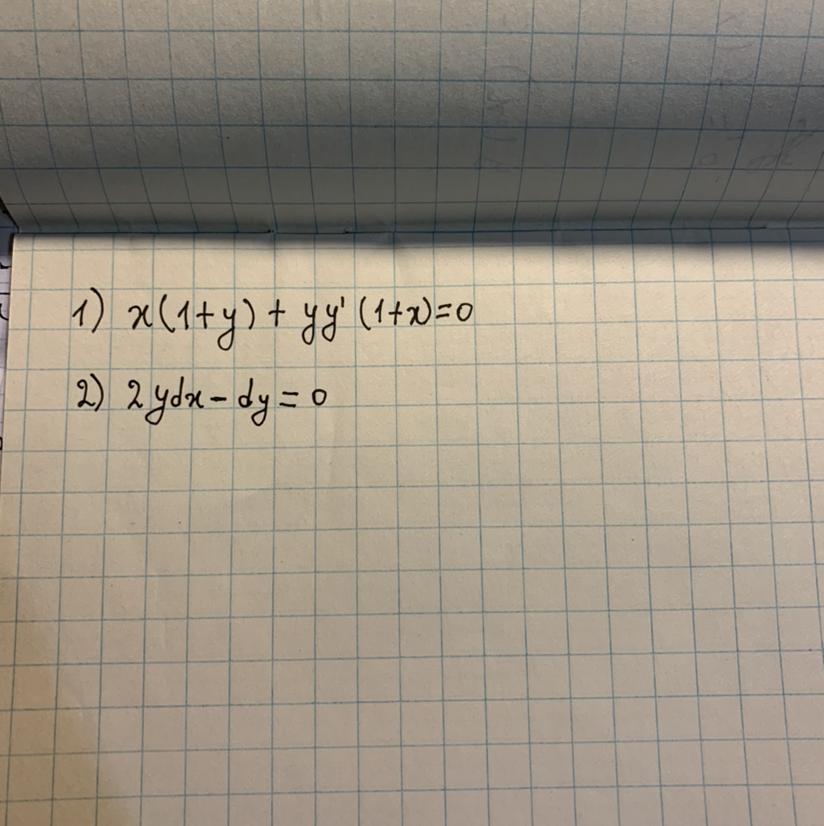 1) x(1+y) + yy' (1+x)=0
2) 2ydx - dy = 0